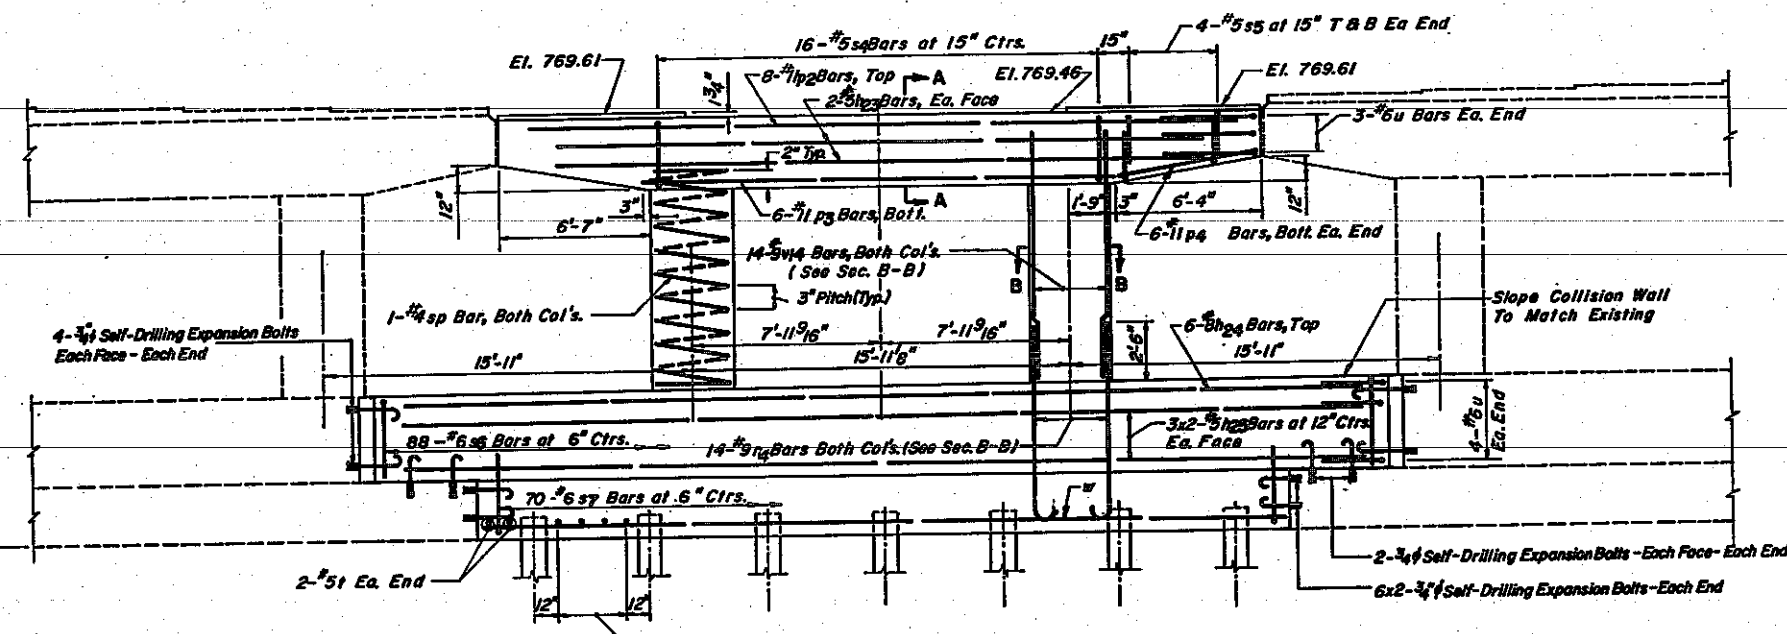 4-#5s5 at 15" T & B Ea End
16-#5s4 Bars at 15" Ctrs.
15"
El. 769.61
8-#11p2 Bars, Top
A
El. 769.46
El. 769.61
1¾"
2-#5h23 Bars, Ea. Face
3-#6u Bars Ea. End
2" Typ.
12"
3"
6'-7"
6-#11 p3 Bars, Bott.
A
1'-9"
3"
6'-4"
12"
6-#11 p4 Bars, Bott. Ea. End
14-#9v14 Bars, Both Col's.
(See Sec. B-B)
B
B
3" Pitch (Typ.)
1-#4 sp Bar, Both Col's.
Slope Collision Wall
To Match Existing
4-¾"ϕ Self-Drilling Expansion Bolts
Each Face - Each End
7'-11 9/16"
7'-11 9/16"
6-#8h24 Bars, Top
2'-6"
15'-11"
15'-11⅛"
15'-11"
88-#6s6 Bars at 6" Ctrs.
14-#9n4 Bars Both Col's. (See Sec. B-B)
3x2-#5h23 Bars at 12" Ctrs.
Ea. Face
4-#6u
Ea. End
70-#6 s7 Bars at 6" Ctrs.
w
2-#5t Ea. End
2-¾ϕ Self-Drilling Expansion Bolts - Each Face - Each End
6x2-¾"ϕ Self-Drilling Expansion Bolts - Each End
12"
12"